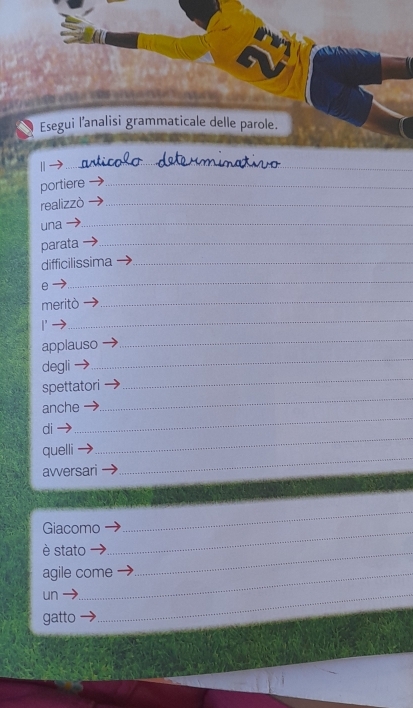 23
Esegui l'analisi grammaticale delle parole.
Il → articolo determinativo
portiere →
realizzò →
una →
parata →
difficilissima →
e →
meritò →
l' →
applauso →
degli →
spettatori →
anche →
di →
quelli →
avversari →
Giacomo →
è stato →
agile come →
un →
gatto →